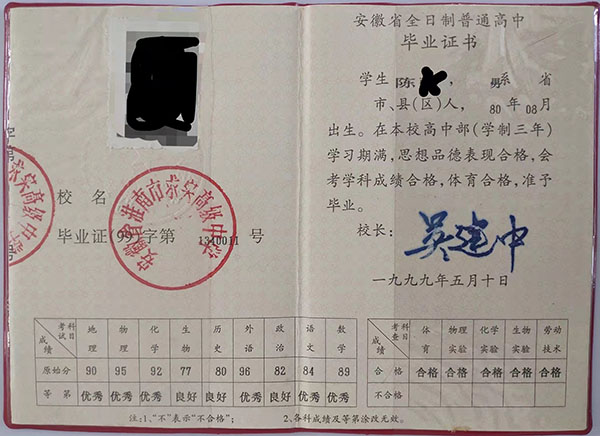 校名
毕业证(99)字第1310011号
考试科目 地理 物理 化学 生物 历史 外语 政治 语文 数学
成绩
原始分 90 95 92 77 80 96 82 84 89
等第 优秀 优秀 优秀 良好 良好 优秀 良好 良好 优秀
注:1、“不”表示“不合格”;
安徽省全日制普通高中
毕业证书
学生陈 ,男系 省
市、县(区)人,80年08月
出生。在本校高中部(学制三年)
学习期满,思想品德表现合格,会
考学科成绩合格,体育合格,准予
毕业。
校长:吴建中
一九九九年五月十日
考查科目 体育 物理实验 化学实验 生物实验 劳动技术
成绩
合格 合格 合格 合格 合格 合格
不合格
2、各科成绩及等第涂改无效。